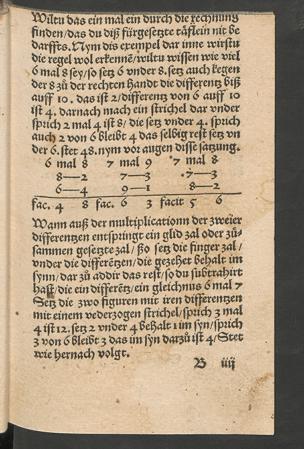 Wiltu das ein mal ein durch die rechnung
finden/das du diß fürgesetzte täflein nit be
darffts. Nym dis exempel dar inne wirstu
die regel wol erkennē/wiltu wissen wie viel
6 mal 8 sey/so setz 6 vnder 8. setz auch kegen
der 8 zů der rechten handt die differentz biß
auff 10. das ist 2/differentz von 6 auff 10
ist 4. darnach mach ein strichel dar vnder
sprich 2 mal 4 ist 8/die setz vnder 4. sprich
auch 2 von 6 bleibt 4 das selbig rest setz vn
der 6. stet 48. nym vor augen disse satzung.
6 mal 8 7 mal 9 7 mal 8
8—2 7—3 7—3
6—4 9—1 8—2
fac. 4 8 fac. 6 3 facit 5 6
Wann auß der multiplicationn der zweier
differenzen entspringt ein glid zal oder zů-
sammen gesetzte zal/ßo setz die finger zal/
vnder die differētzen/die gezehet behalt im
synn/dar zů addir das rest/so du subtrahirt
hast/die ein differētz/ein gleichnus 6 mal 7
Setz die zwo figuren mit iren differentzen
mit einem vnderzogen strichel/sprich 3 mal
4 ist 12. setz 2 vnder 4 behalt 1 im syn/sprich
3 von 6 bleibt 3 das im syn darzů ist 4/Stet
wie hernach volgt.
B iiij